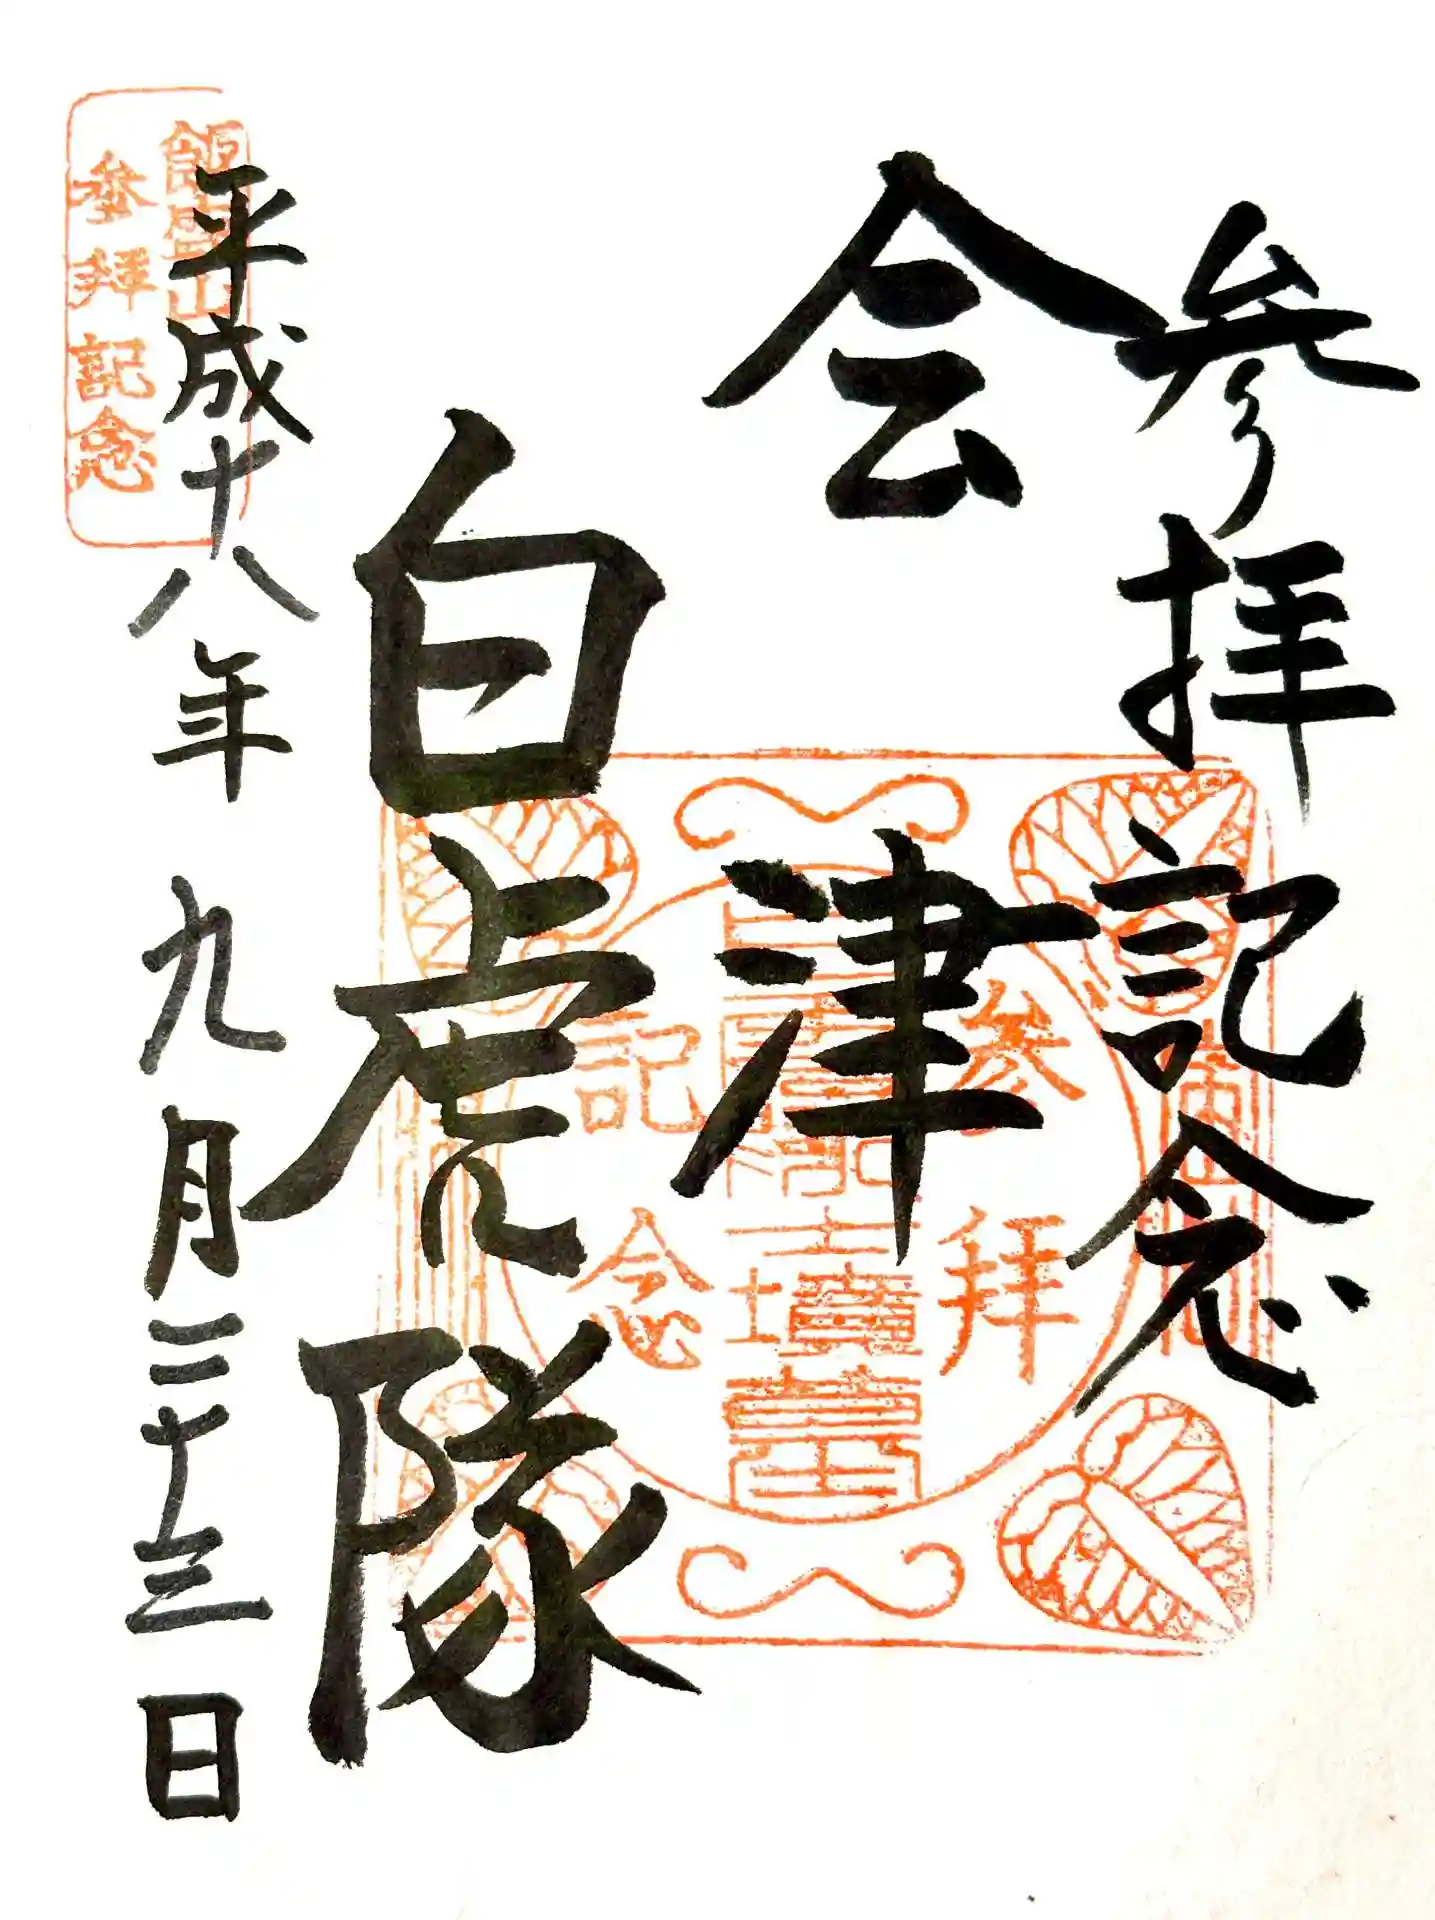 参拝記念
会津
白虎隊
平成十八年九月二十三日
飯盛山
参拝記念
参拝
白虎隊士墳墓
記念